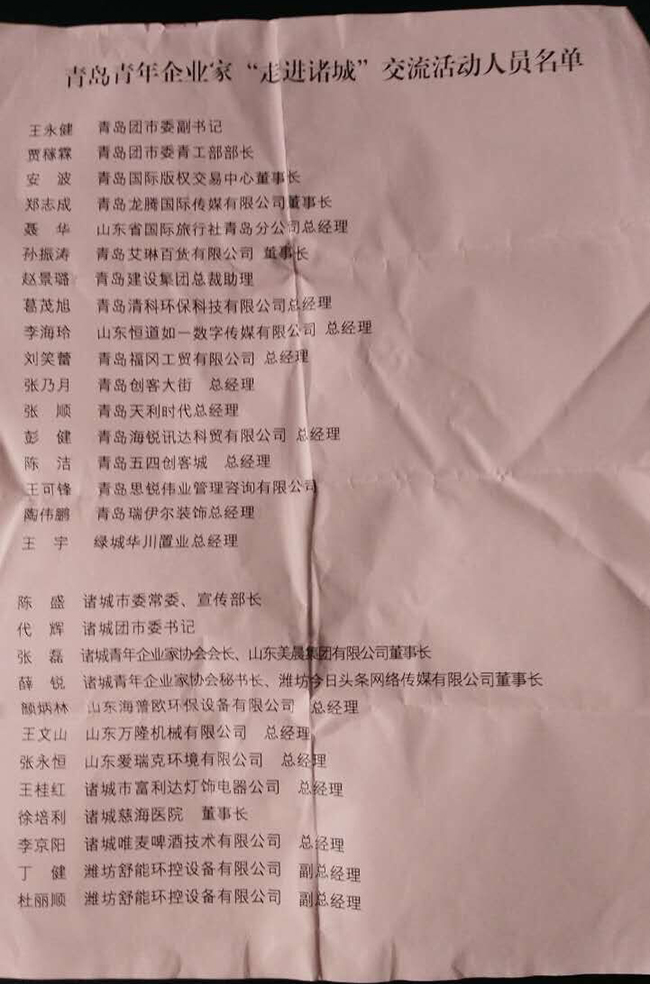 青岛青年企业家“走进诸城”交流活动人员名单
王永健 青岛团市委副书记
贾稼霖 青岛团市委青工部部长
安 波 青岛国际版权交易中心董事长
郑志成 青岛龙腾国际传媒有限公司董事长
聂 华 山东省国际旅行社青岛分公司总经理
孙振涛 青岛艾琳百货有限公司 董事长
赵景璐 青岛建设集团总裁助理
葛茂旭 青岛清科环保科技有限公司总经理
李海玲 山东恒道如一数字传媒有限公司 总经理
刘笑蕾 青岛福冈工贸有限公司 总经理
张乃月 青岛创客大街 总经理
张 顺 青岛天利时代总经理
彭 健 青岛海锐讯达科贸有限公司 总经理
陈 洁 青岛五四创客城 总经理
王可锋 青岛思锐伟业管理咨询有限公司
陶伟鹏 青岛瑞伊尔装饰总经理
王 宇 绿城华川置业总经理
陈 盛 诸城市委常委、宣传部长
代 辉 诸城团市委书记
张 磊 诸城青年企业家协会会长、山东美晨集团有限公司董事长
薛 锐 诸城青年企业家协会秘书长、潍坊今日头条网络传媒有限公司董事长
颜炳林 山东海普欧环保设备有限公司 总经理
王文山 山东万隆机械有限公司 总经理
张永恒 山东爱瑞克环境有限公司 总经理
王桂红 诸城市富利达灯饰电器公司 总经理
徐培利 诸城慈海医院 董事长
李京阳 诸城唯麦啤酒技术有限公司 总经理
丁 健 潍坊舒能环控设备有限公司 副总经理
杜丽顺 潍坊舒能环控设备有限公司 副总经理